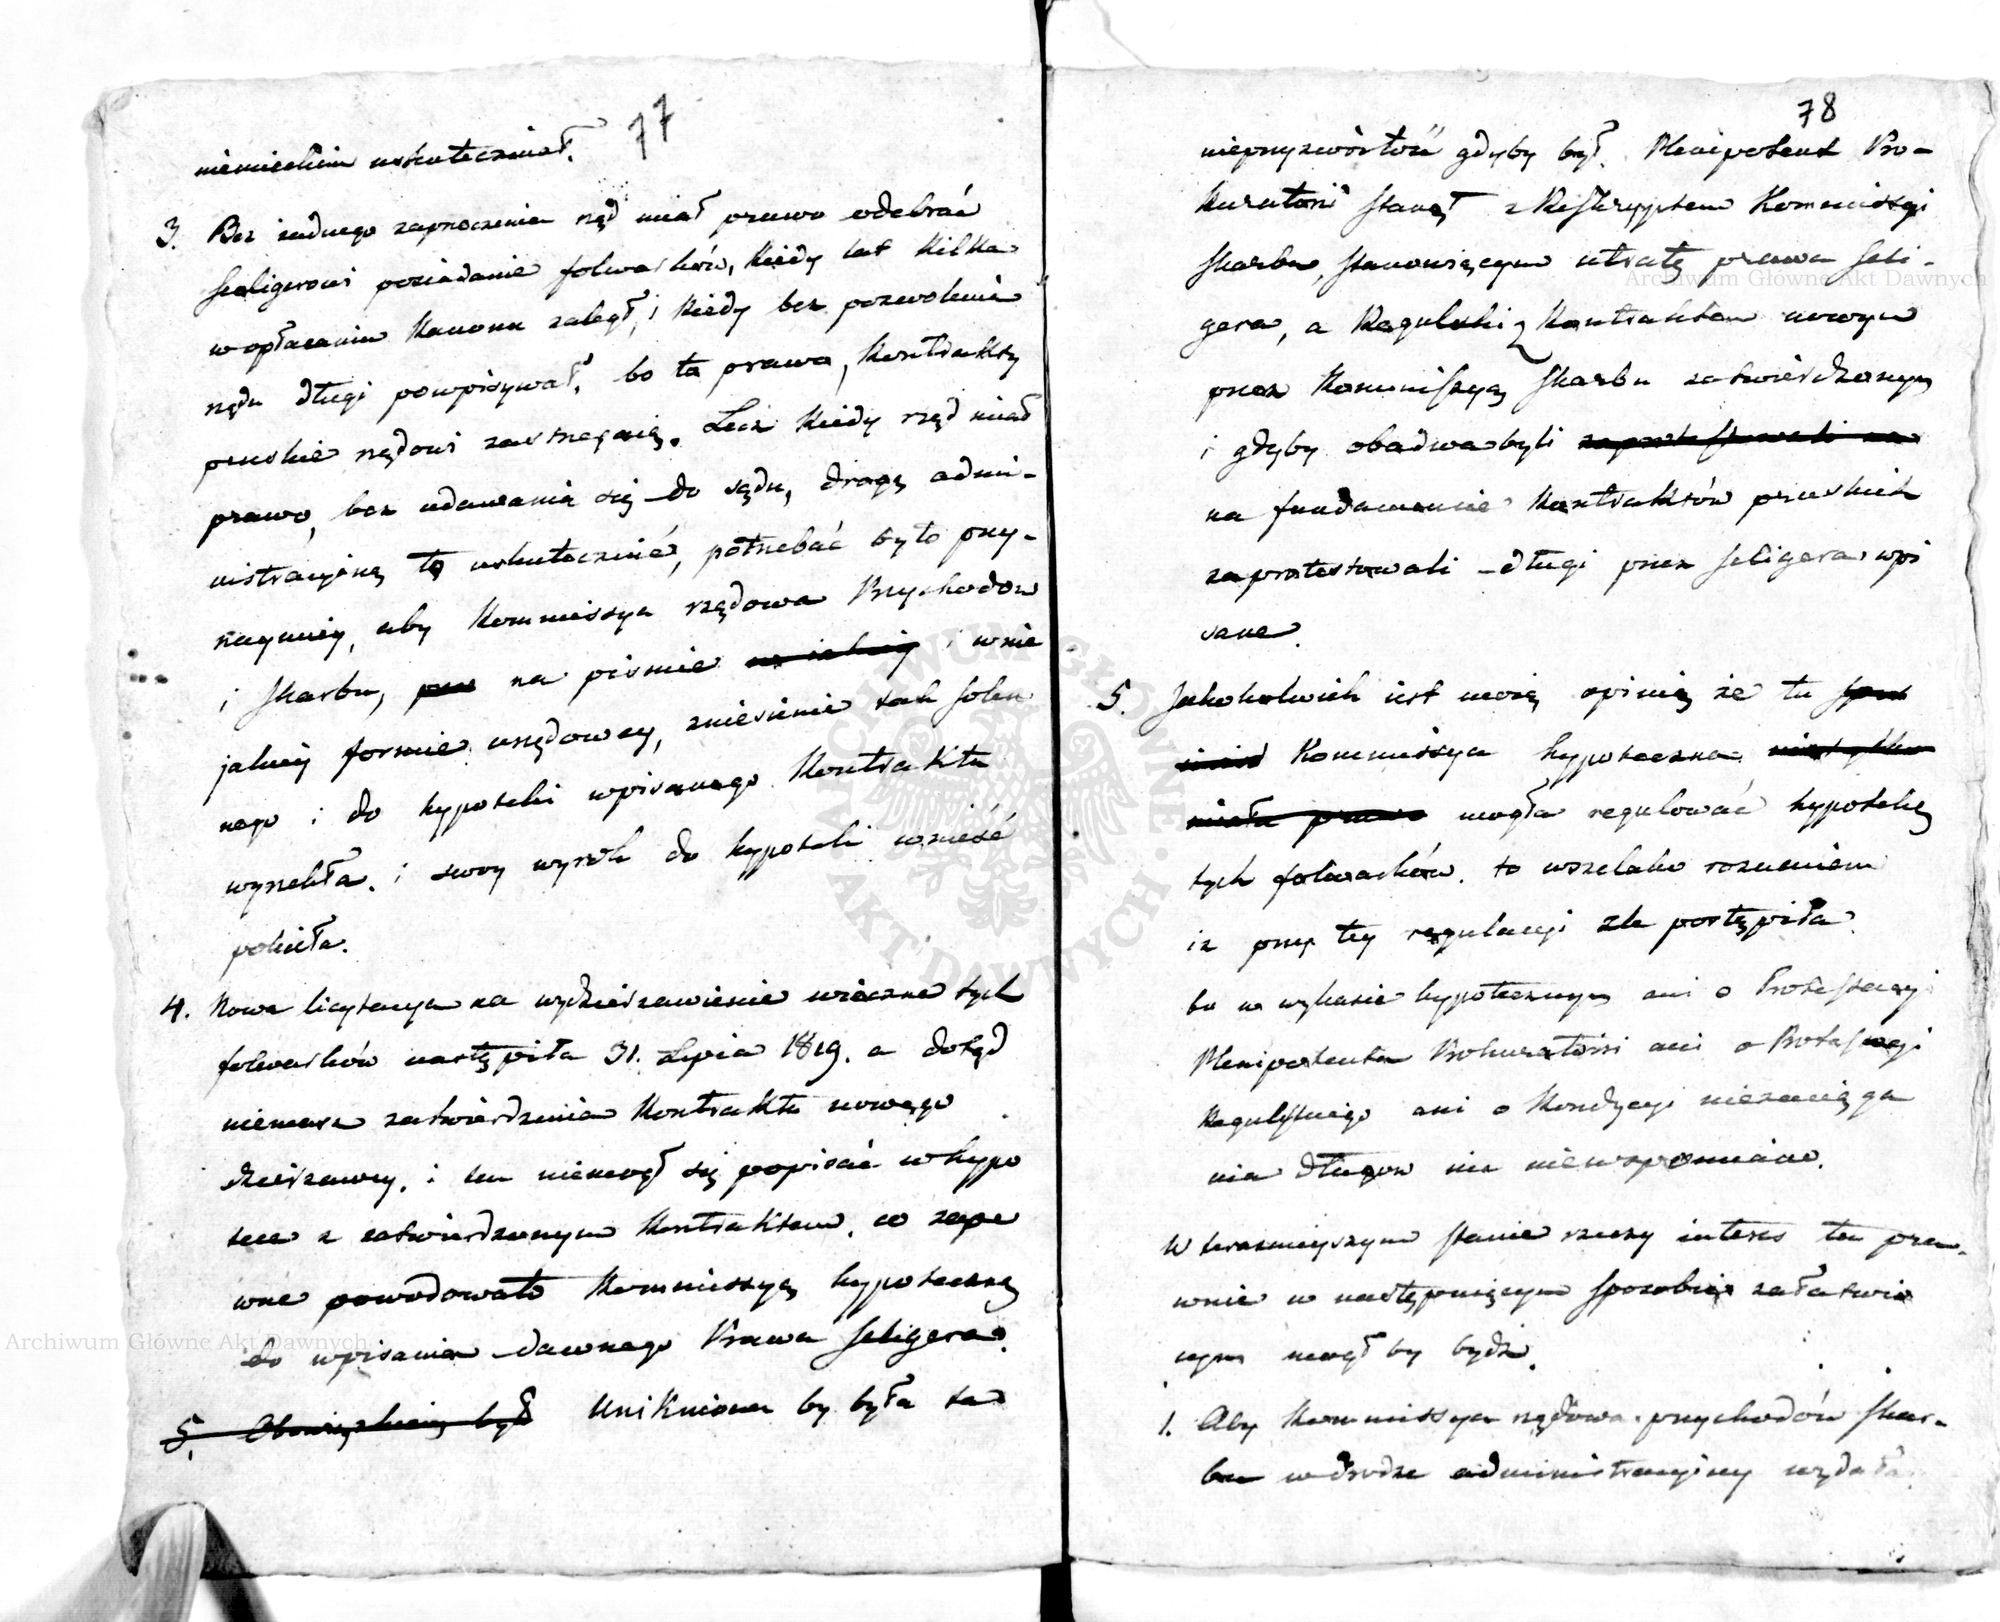 77
niemieckim uskuteczniał.
3. Bez żadnego zaprzeczenia rząd miał prawo odebrać
Seeligerowi posiadanie folwarków, kiedy lat kilka
w opłacaniu kanonu zaległ, i kiedy bez pozwolenia
rządu długi powpisywał, bo ta prawa, kontrakty
pruskie rządowi zastrzegaią. Lecz kiedy rząd miał
prawo, bez udawania się do sądu, drogą admi-
nistracyiną to uskutecznić, potrzebać było przy-
naymniey, aby Kommissya rządowa Przychodow
i Skarbu, na pismie i w nie
jakiey formie urzędowey, zniesienie tak solen
nego i do hypoteki wpisanego Kontraktu
wyrzekła. i swoy wyrok do hypoteki wnieść
poleciła.
4. Nowa licytacya na wydzierzawienie wieczne tych
folwarków nastąpiła 31. Lipca 1819. a dotąd
niemasz zatwierdzenia Kontraktu nowego
dzierzawcy, i ten niemogł się popisać w hypo
tece z zatwierdzonym Kontraktem, co zape
wne powodowało Kommissyą hypoteczną
do wpisania dawnego Prawa Seligera.
5. Obowiązkiem był Unikniona by była ta
78
nieprzyzwoitość gdyby był Plenipotent Pro-
kuratorii stanął z Reskryptem Kommissyi
Skarbu, stanowiącym utratę prawa Seli-
gera, a Regulski z Kontraktem nowym
przez Kommissyą Skarbu zatwierdzonym
i gdyby obadwa byli zaprotestowali na
na fundamencie Kontraktów pruskich
zaprotestowali długi przez Seligera wpi
sane.
5. Jakokolwiek iest moią opinią że tu
Kommissya hypoteczna nietylko
miała prawo mogła regulować hypotekę
tych folwarków. to wszelako rozumiem
iz przy tey regulacyi zle postąpiła
bo w wykazie hypotecznym ani o Protestacyi
Plenipotenta Prokuratorii ani o Protestacyi
Regulskiego ani o Kondycyi niezaciąga
nia długow nie niewspomniano.
W teraznieyszym stanie rzeczy interes ten pra-
wnie w następuiącym sposobie załatwio
nym mogł by bydz.
1. Aby Kommissya rządowa przychodów Skar-
bu w drodze administracyiney wydała
Archiwum Główne Akt Dawnych
Archiwum Główne Akt Dawnych
ARCHIWUM GŁÓWNE AKT DAWNYCH